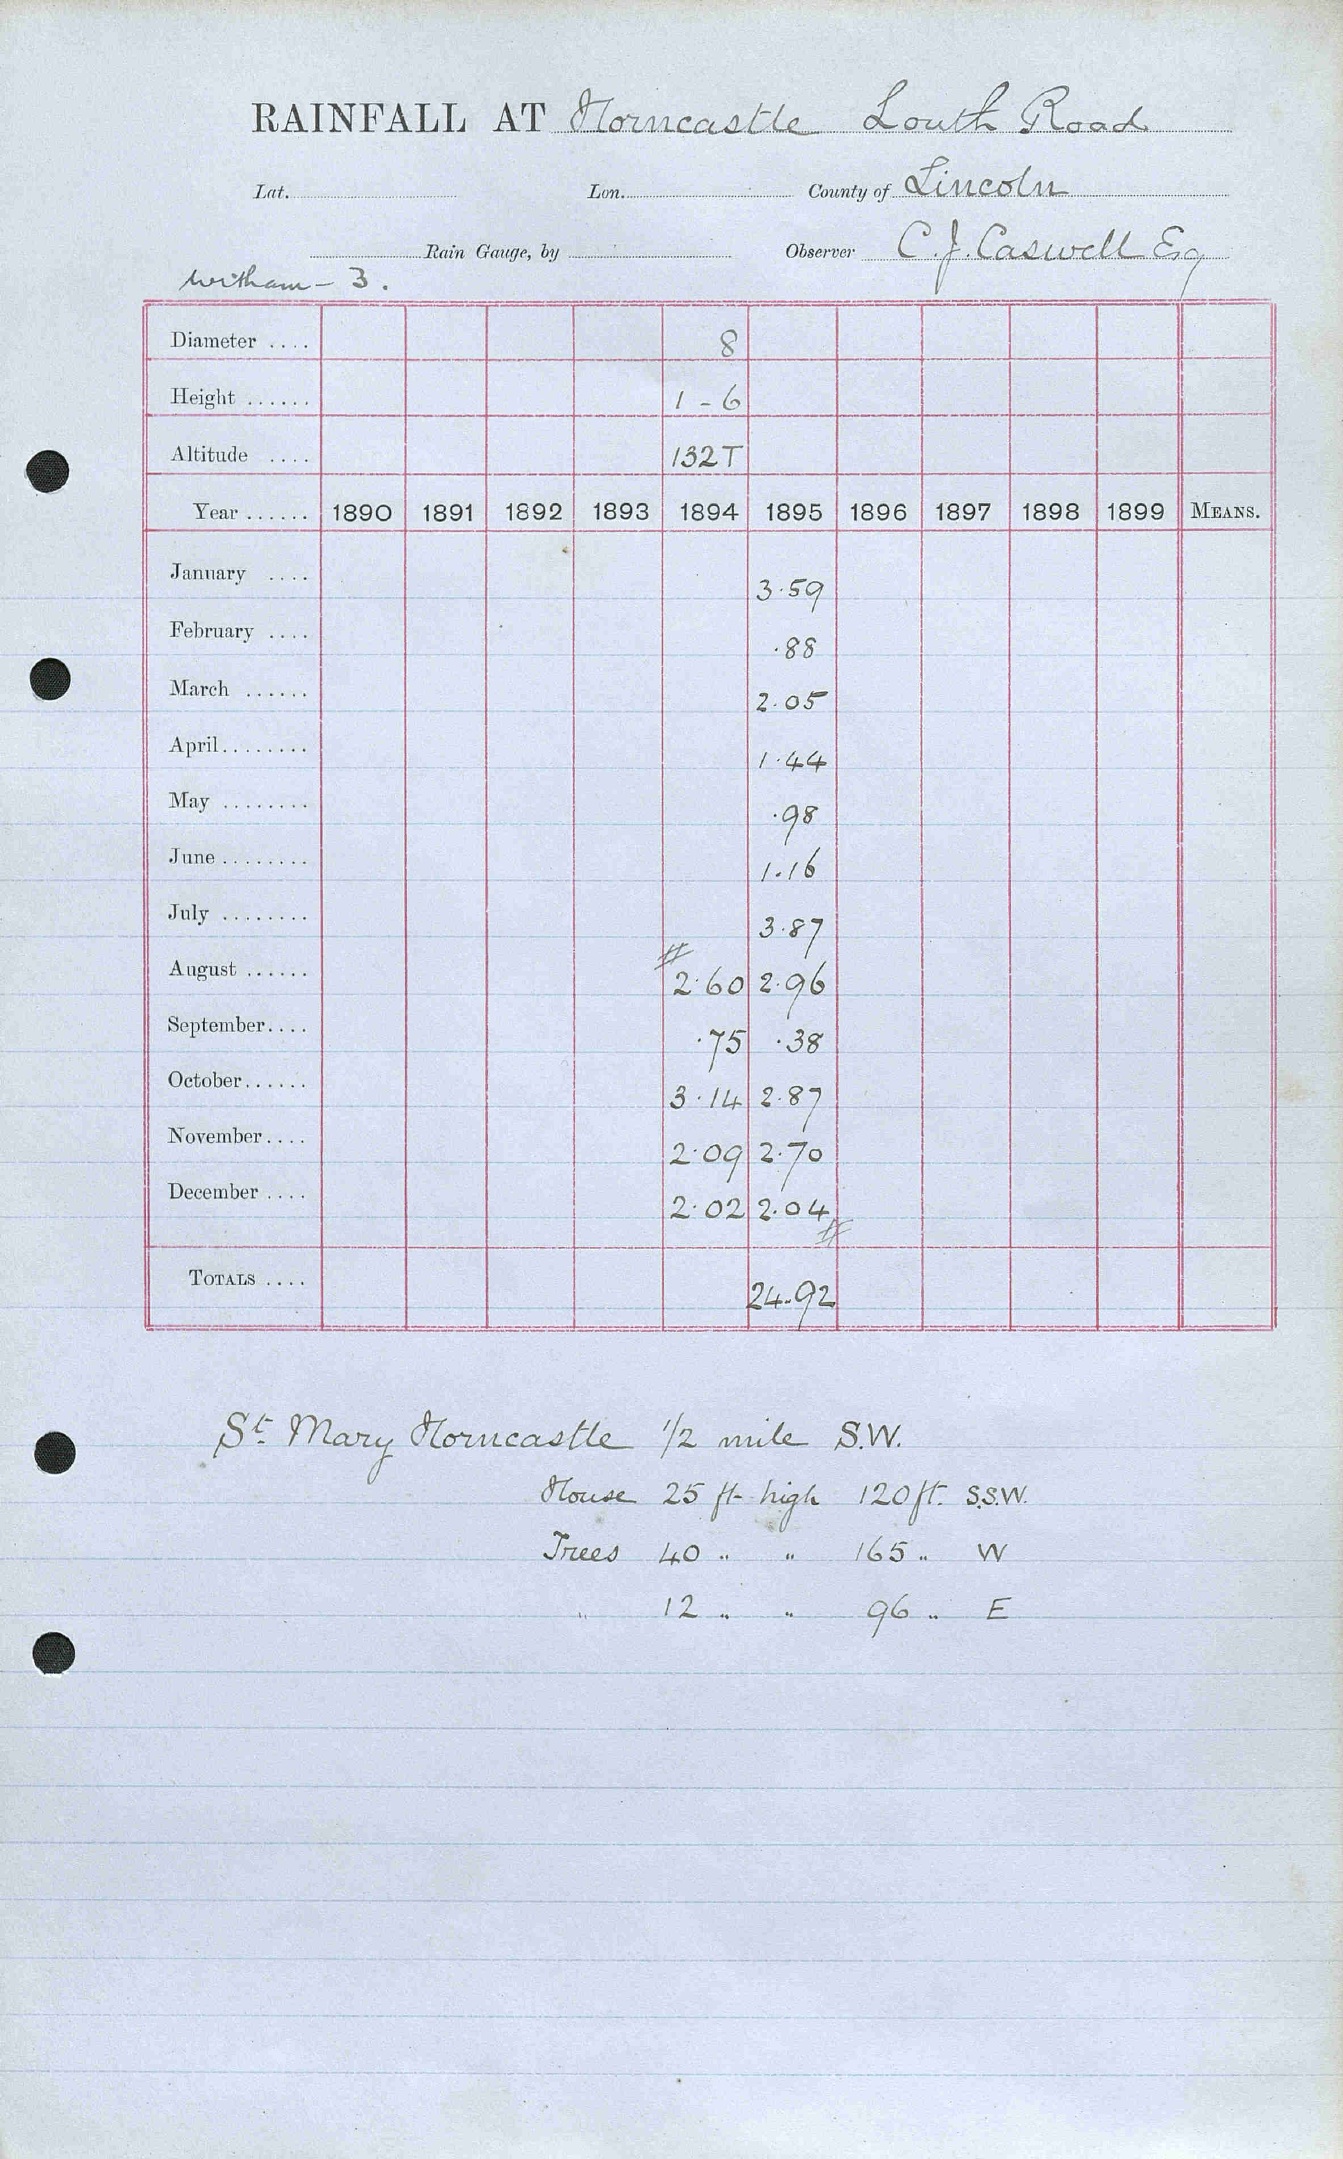 RAINFALL AT Horncastle Louth Road
Lat. Lon. County of Lincoln
Rain Gauge, by Observer C. J. Caswell Esq
Witham - 3.
Diameter .... 8
Height ...... 1 - 6
Altitude .... 132 T
Year ...... 1890 1891 1892 1893 1894 1895 1896 1897 1898 1899 MEANS.
January .... 3.59
February .... .88
March ...... 2.05
April........ 1.44
May ........ .98
June ........ 1.16
July ........ 3.87
#
August ...... 2.60 2.96
September.... .75 .38
October...... 3.14 2.87
November.... 2.09 2.70
December .... 2.02 2.04
#
TOTALS .... 24.92
St. Mary Horncastle 1/2 mile S.W.
House 25 ft high 120 ft. S.S.W.
Trees 40 " " 165 " W
" 12 " " 96 " E